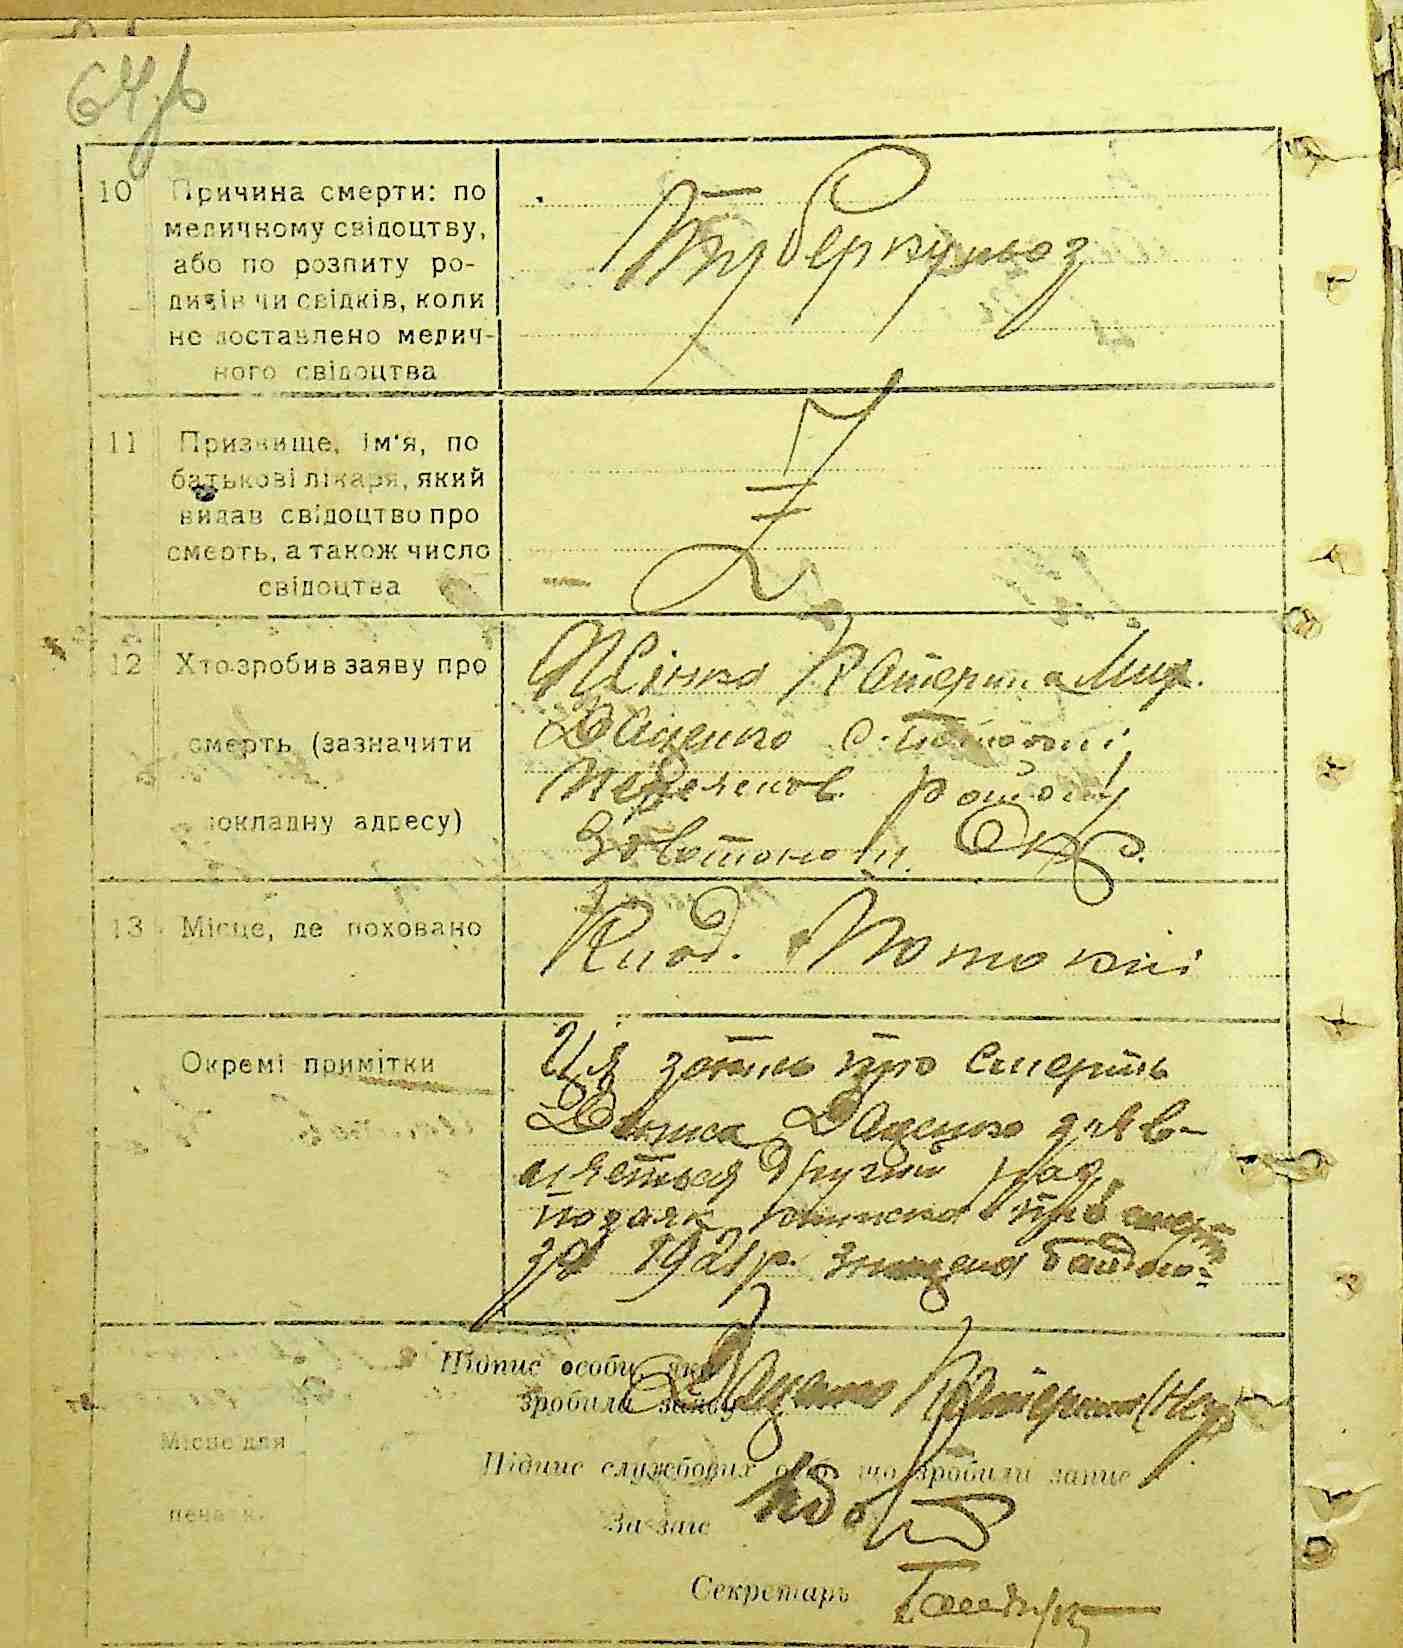 10 Причина смерти: по
медичному свідоцтву,
або по розпиту ро-
дичів чи свідків, коли
не доставлено медич-
ного свідоцтва
Туберкульоз
11 Призвище, ім'я, по
батькові лікаря, який
видав свідоцтво про
смерть, а також число
свідоцтва
12 Хто зробив заяву про
смерть (зазначити
докладну адресу)
Жінка Катерина Мир.
Даценко
району
Золотоніськ. Окр.
13 Місце, де поховано
Клад.
Окремі примітки
Ця запись про смерть
Дениса Даценко заяв-
ляється другий раз,
позаяк записка про смерть
за 1921р. знищена бандою
Підпис особи, яка
зробила заяву
Даценко Катерина
Підпис службових осіб, що зробили запис
Місце для
печатки
За заг
Секретарь